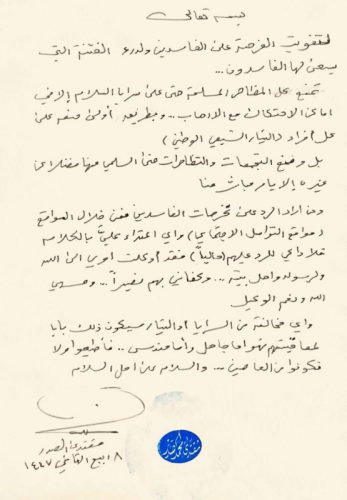 بسمه تعالى
لتفويت الفرصة على الفاسدين ولدرء الفتنة التي
يسعى لها الفاسدون...
تمنع كل المظاهر المسلحة حتى على سرايا السلام إلا في
أماكن الاحتكاك مع الإرهاب.. وبطريقة أولى منعه على
كل أفراد (التيار الشيعي الوطني)
بل ومنع التجمعات والتظاهرات حتى السلمي منها فضلا عن
غيره إلا بأمر مباشر منا
ومن أراد الرد على تخرصات الفاسدين فمن خلال المواقع
(مواقع التواصل الاجتماعي) وأي اعتداء عليّ بالكلام
فلا داعي للرد عليهم (حالياً) فقد أوكلت أمري إلى الله
ولرسوله وأهل بيته... وكفاني بهم نصيراً... وحسبي
الله ونعم الوكيل
وأي مخالفة من السرايا أو التيار سيكون ذلك بابا
لمعاقبتهم فهو إما جاهل وإما مندس.. فأطيعوا ولا
تكونوا من العاصين... والسلام على أهل السلام
مقتدى الصدر
٨ ربيع الثاني ١٤٤٧